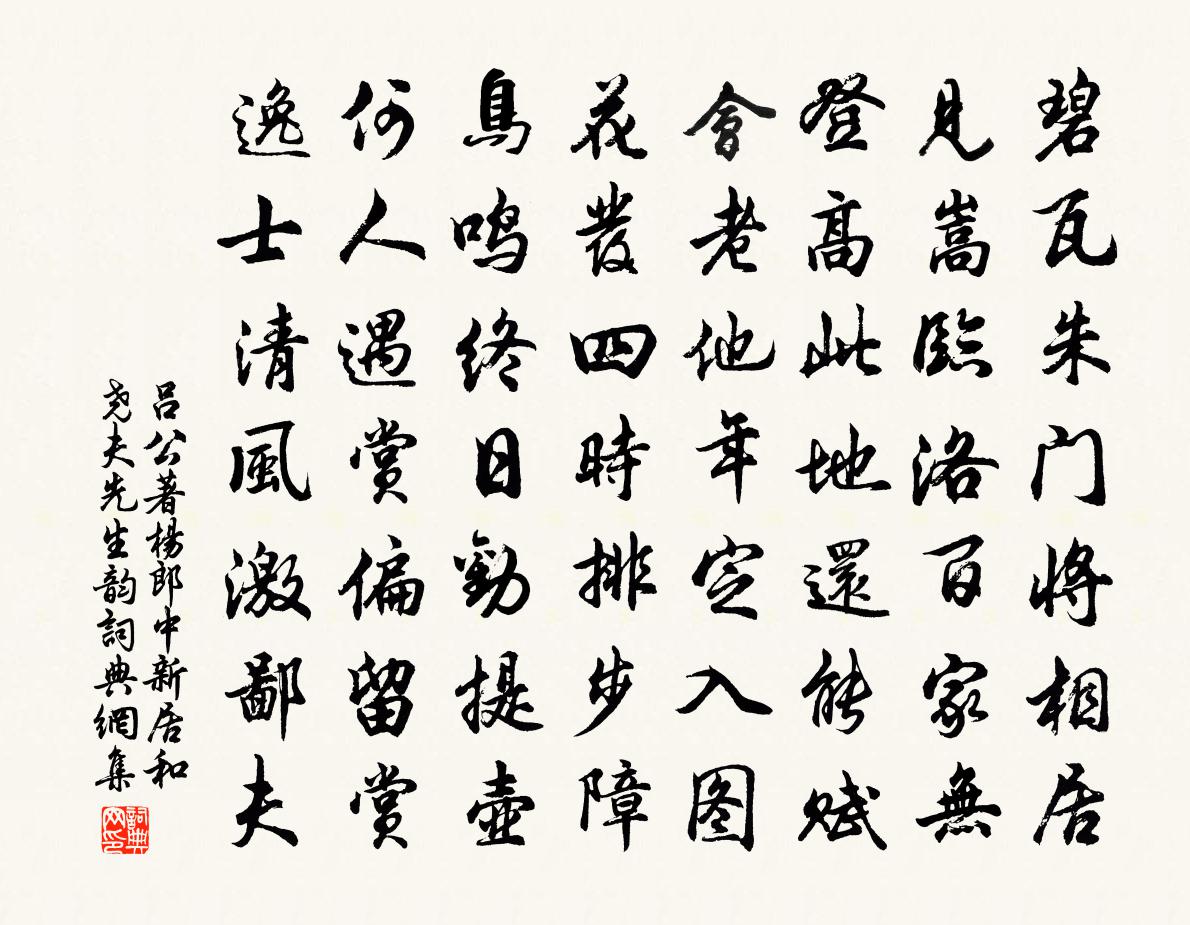 碧瓦朱门将相居
見嵩臨洛百家無
登高此地還能赋
會老他年定入图
花發四時排步障
鳥鸣終日勸提壺
何人遇赏偏留赏
逸士清風激鄙夫
呂公著楊郎中新居和
尧夫先生韵詞典網集
詞典
网印